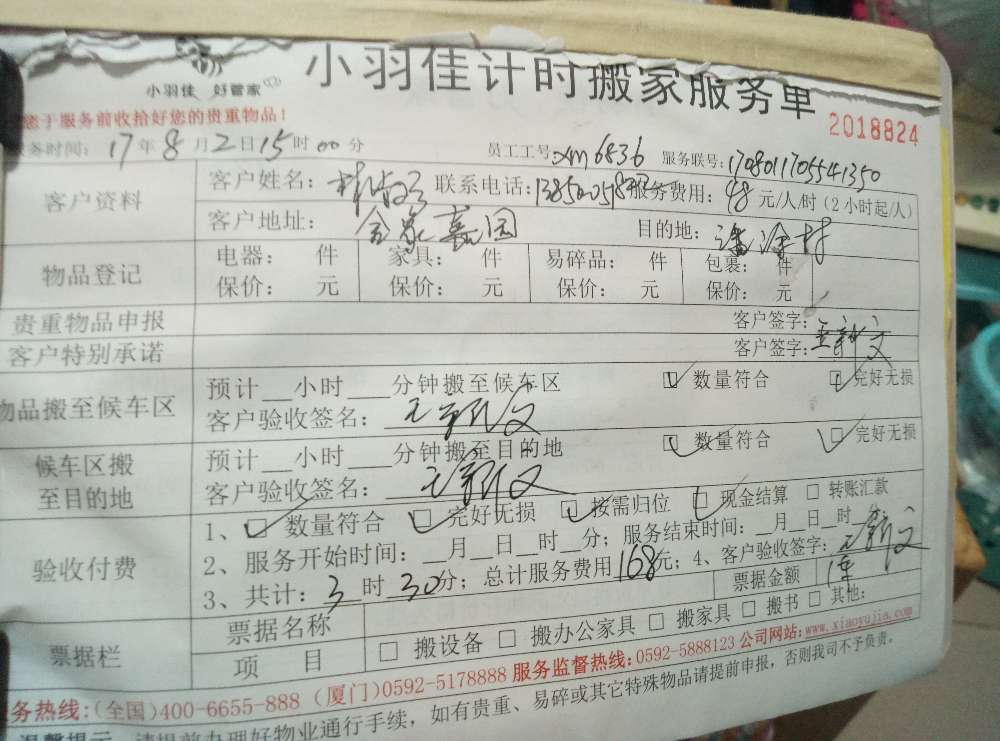 小羽佳 好管家
小羽佳计时搬家服务单
2018824
您于服务前收拾好您的贵重物品！
务时间：17年8月2日15时00分 员工工号：xm6836 服务联号：1708011705541350
客户资料 客户姓名： 联系电话： 服务费用：48元/人/时（2小时起/人）
客户地址：金象嘉园 目的地：潘涂村
物品登记 电器： 件 家具： 件 易碎品： 件 包裹： 件
保价： 元 保价： 元 保价： 元 保价： 元
贵重物品申报 客户签字：
客户特别承诺 客户签字：王新文
物品搬至候车区 预计__小时___分钟搬至候车区 数量符合 完好无损
客户验收签名：王新文
候车区搬至目的地 预计__小时___分钟搬至目的地 数量符合 完好无损
客户验收签名：王新文
验收付费 1、 数量符合 完好无损 按需归位 现金结算 转账汇款
2、服务开始时间：__月__日__时__分；服务结束时间：__月__日__时
3、共计：3时30分；总计服务费用168元；4、客户验收签字：王新文
票据栏 票据名称 票据金额
项 目 搬设备 搬办公家具 搬家具 搬书 其他：
务热线：（全国）400-6655-888（厦门）0592-5178888 服务监督热线：0592-5888123 公司网站：www.xiaoyujia.com
温馨提示 请提前办理好物业通行手续，如有贵重、易碎或其它特殊物品请提前申报，否则我司不予负责。